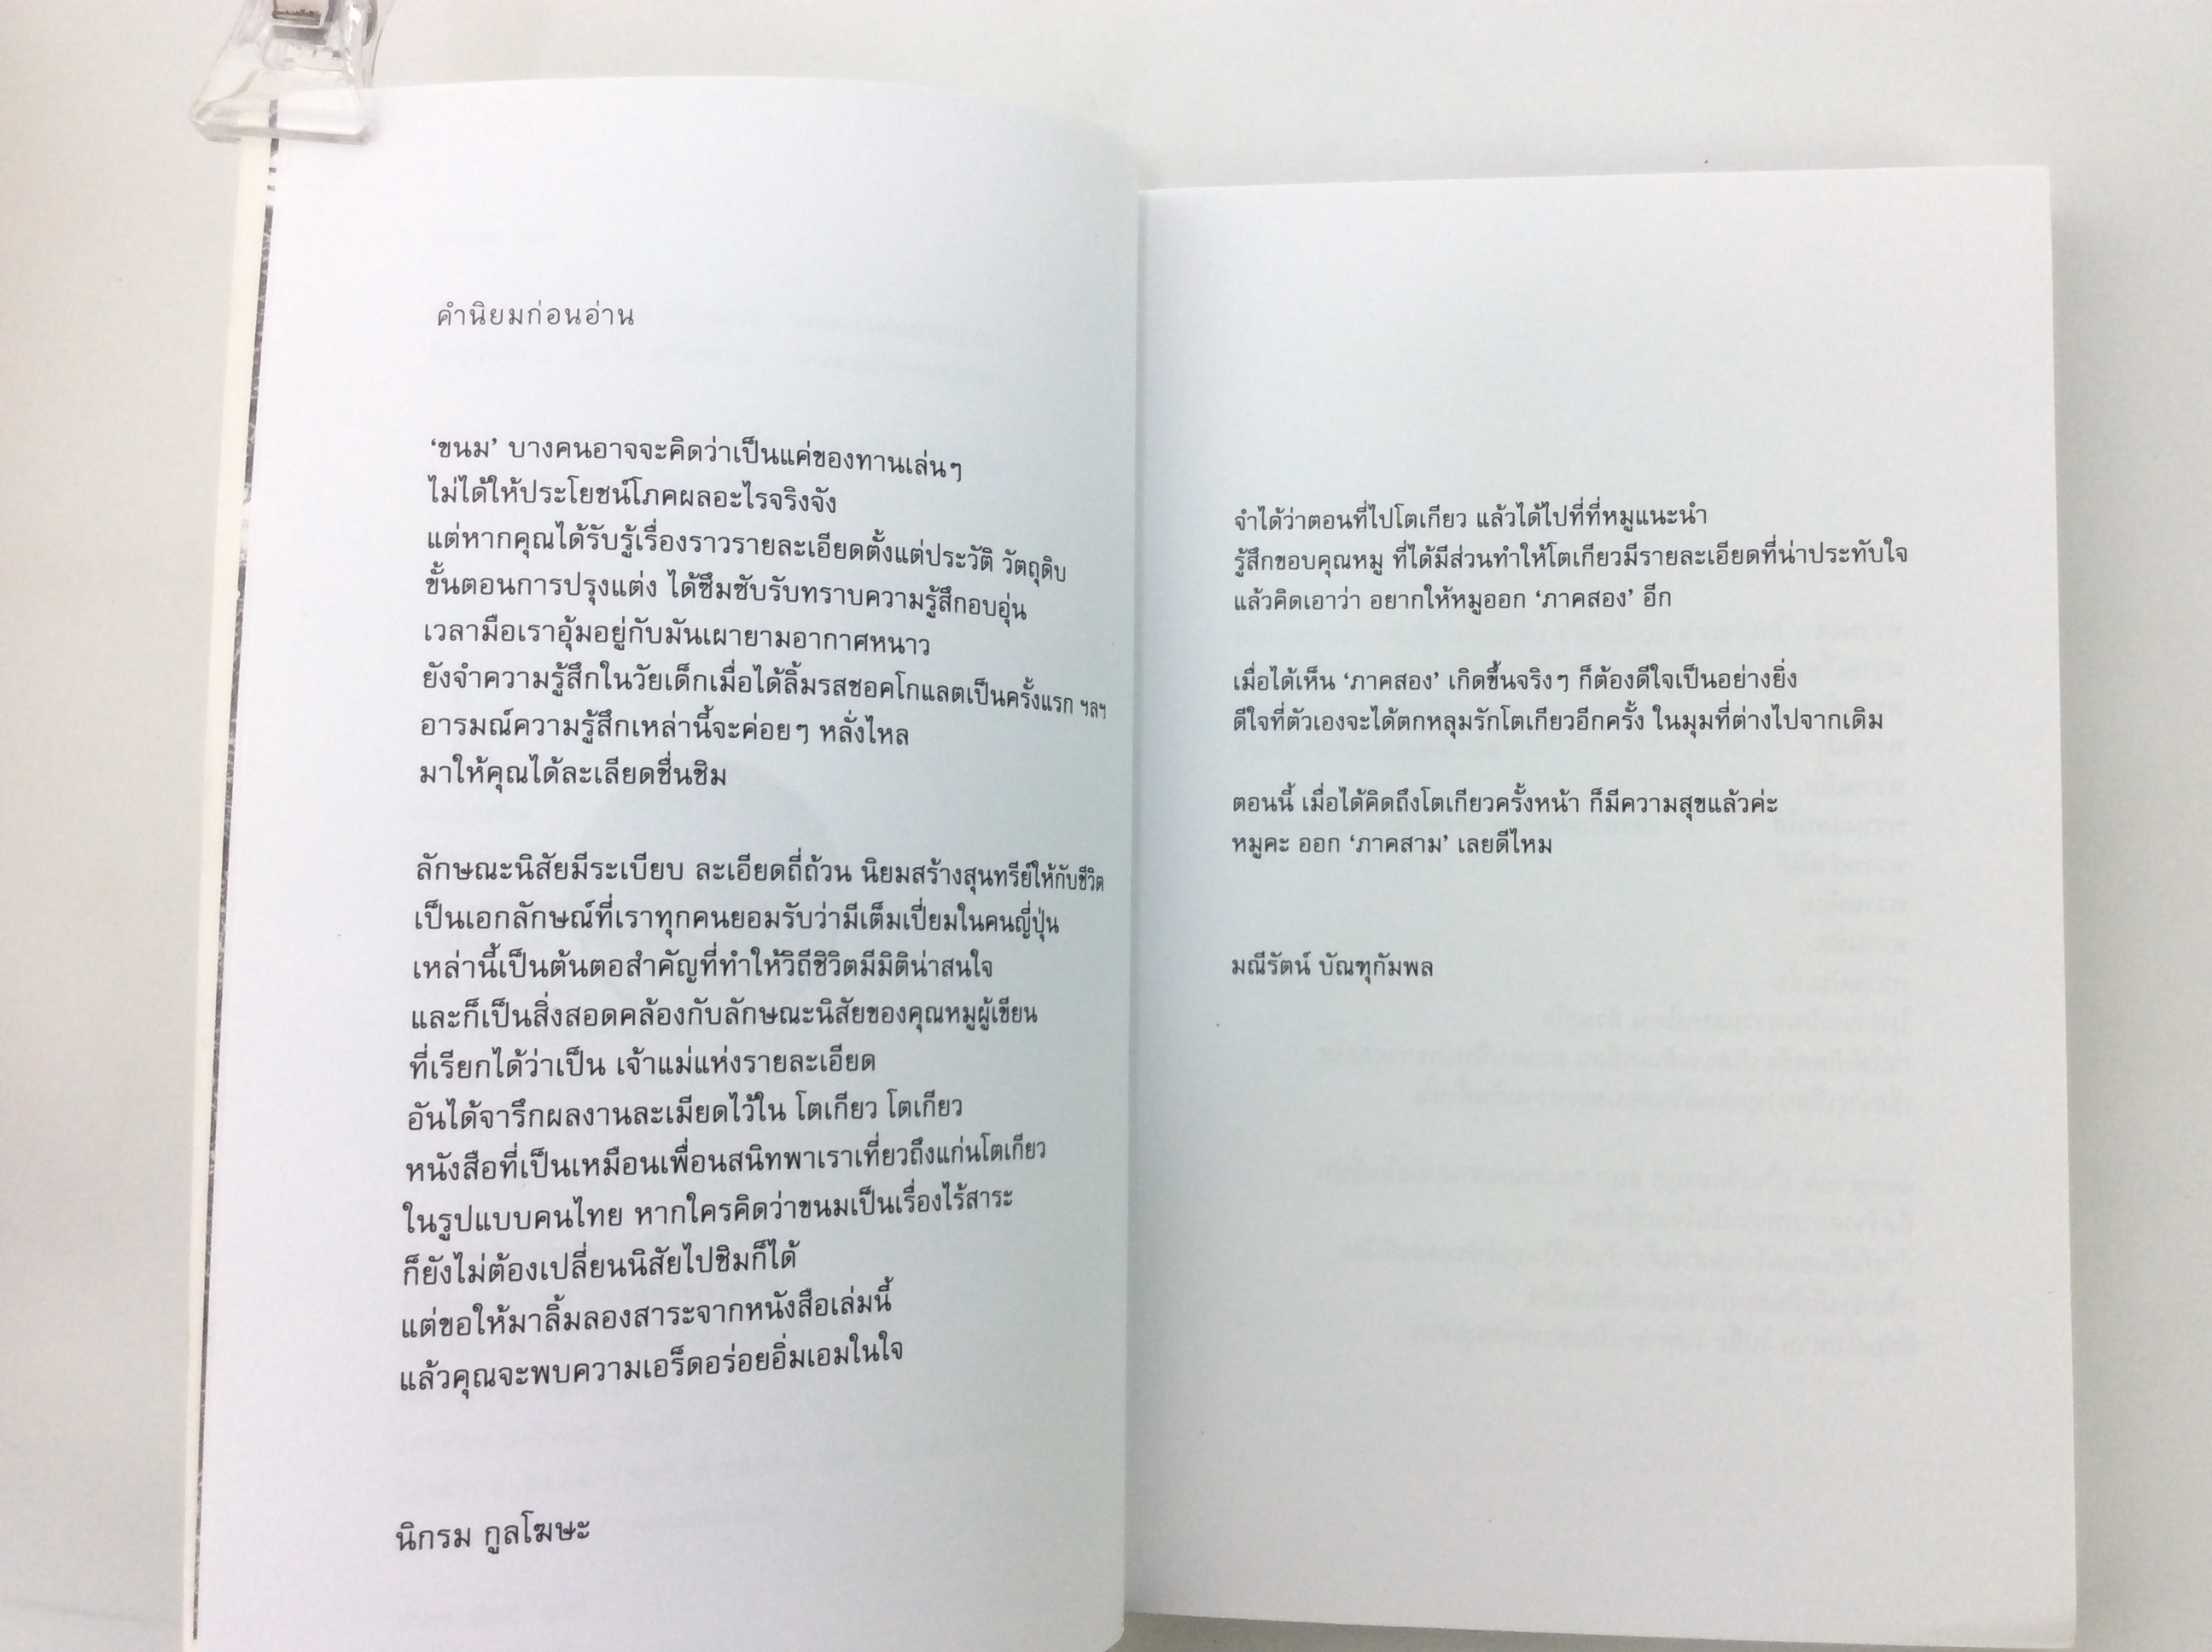 คำนิยมก่อนอ่าน
‘ขนม’ บางคนอาจจะคิดว่าเป็นแค่ของทานเล่นๆ
ไม่ได้ให้ประโยชน์โภคผลอะไรจริงจัง
แต่หากคุณได้รับรู้เรื่องราวรายละเอียดตั้งแต่ประวัติ วัตถุดิบ
ขั้นตอนการปรุงแต่ง ได้ซึมซับรับทราบความรู้สึกอบอุ่น
เวลามือเราอุ้มอยู่กับมันเผายามอากาศหนาว
ยังจำความรู้สึกในวัยเด็กเมื่อได้ลิ้มรสชอคโกแลตเป็นครั้งแรก ฯลฯ
อารมณ์ความรู้สึกเหล่านี้จะค่อยๆ หลั่งไหล
มาให้คุณได้ละเลียดชื่นชิม
ลักษณะนิสัยมีระเบียบ ละเอียดถี่ถ้วน นิยมสร้างสุนทรีย์ให้กับชีวิต
เป็นเอกลักษณ์ที่เราทุกคนยอมรับว่ามีเต็มเปี่ยมในคนญี่ปุ่น
เหล่านี้เป็นต้นตอสำคัญที่ทำให้วิถีชิวิตมีมิติน่าสนใจ
และก็เป็นสิ่งสอดคล้องกับลักษณะนิสัยของคุณหมูผู้เขียน
ที่เรียกได้ว่าเป็น เจ้าแม่แห่งรายละเอียด
อันได้จารึกผลงานละเมียดไว้ใน โตเกียว โตเกียว
หนังสือที่เป็นเหมือนเพื่อนสนิทพาเราเที่ยวถึงแก่นโตเกียว
ในรูปแบบคนไทย หากใครคิดว่าขนมเป็นเรื่องไร้สาระ
ก็ยังไม่ต้องเปลี่ยนนิสัยไปชิมก็ได้
แต่ขอให้มาลิ้มลองสาระจากหนังสือเล่มนี้
แล้วคุณจะพบความเอร็ดอร่อยอิ่มเอมในใจ
นิกรม กูลโฆษะ
จำได้ว่าตอนที่ไปโตเกียว แล้วได้ไปที่ที่หมูแนะนำ
รู้สึกขอบคุณหมู ที่ได้มีส่วนทำให้โตเกียวมีรายละเอียดที่น่าประทับใจ
แล้วคิดเอาว่า อยากให้หมูออก ‘ภาคสอง’ อีก
เมื่อได้เห็น ‘ภาคสอง’ เกิดขึ้นจริงๆ ก็ต้องดีใจเป็นอย่างยิ่ง
ดีใจที่ตัวเองจะได้ตกหลุมรักโตเกียวอีกครั้ง ในมุมที่ต่างไปจากเดิม
ตอนนี้ เมื่อได้คิดถึงโตเกียวครั้งหน้า ก็มีความสุขแล้วค่ะ
หมูคะ ออก ‘ภาคสาม’ เลยดีไหม
มณีรัตน์ บัณฑุกัมพล